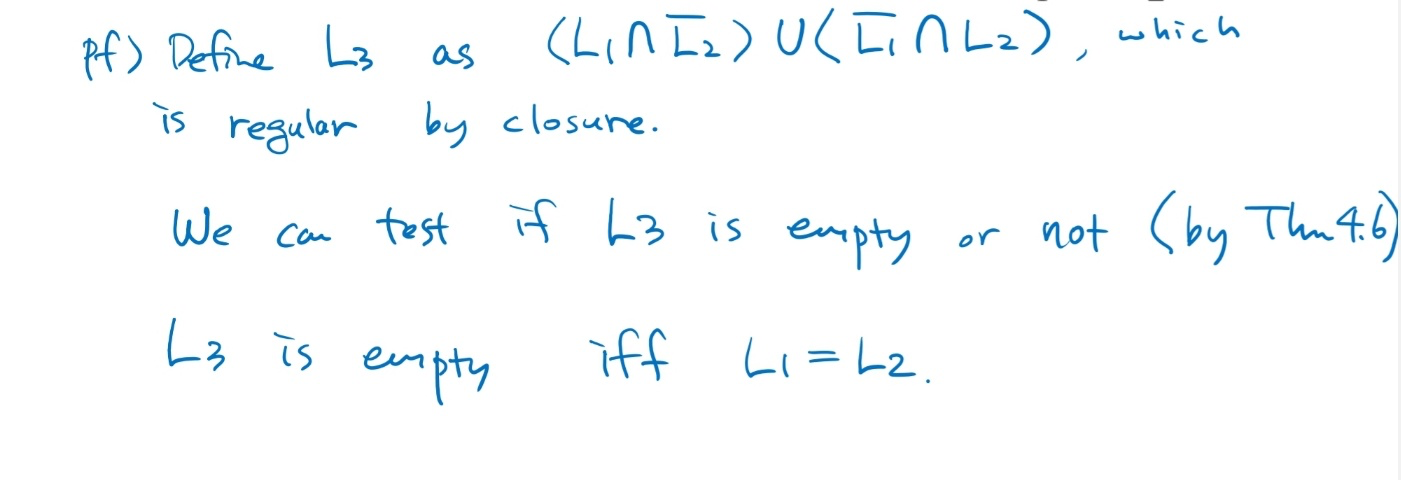 pf) Define L3 as (L1 ∩ L̅2) ∪ (L̅1 ∩ L2), which
is regular by closure.
We can test if L3 is empty or not (by Thm 4.6)
L3 is empty iff L1 = L2.